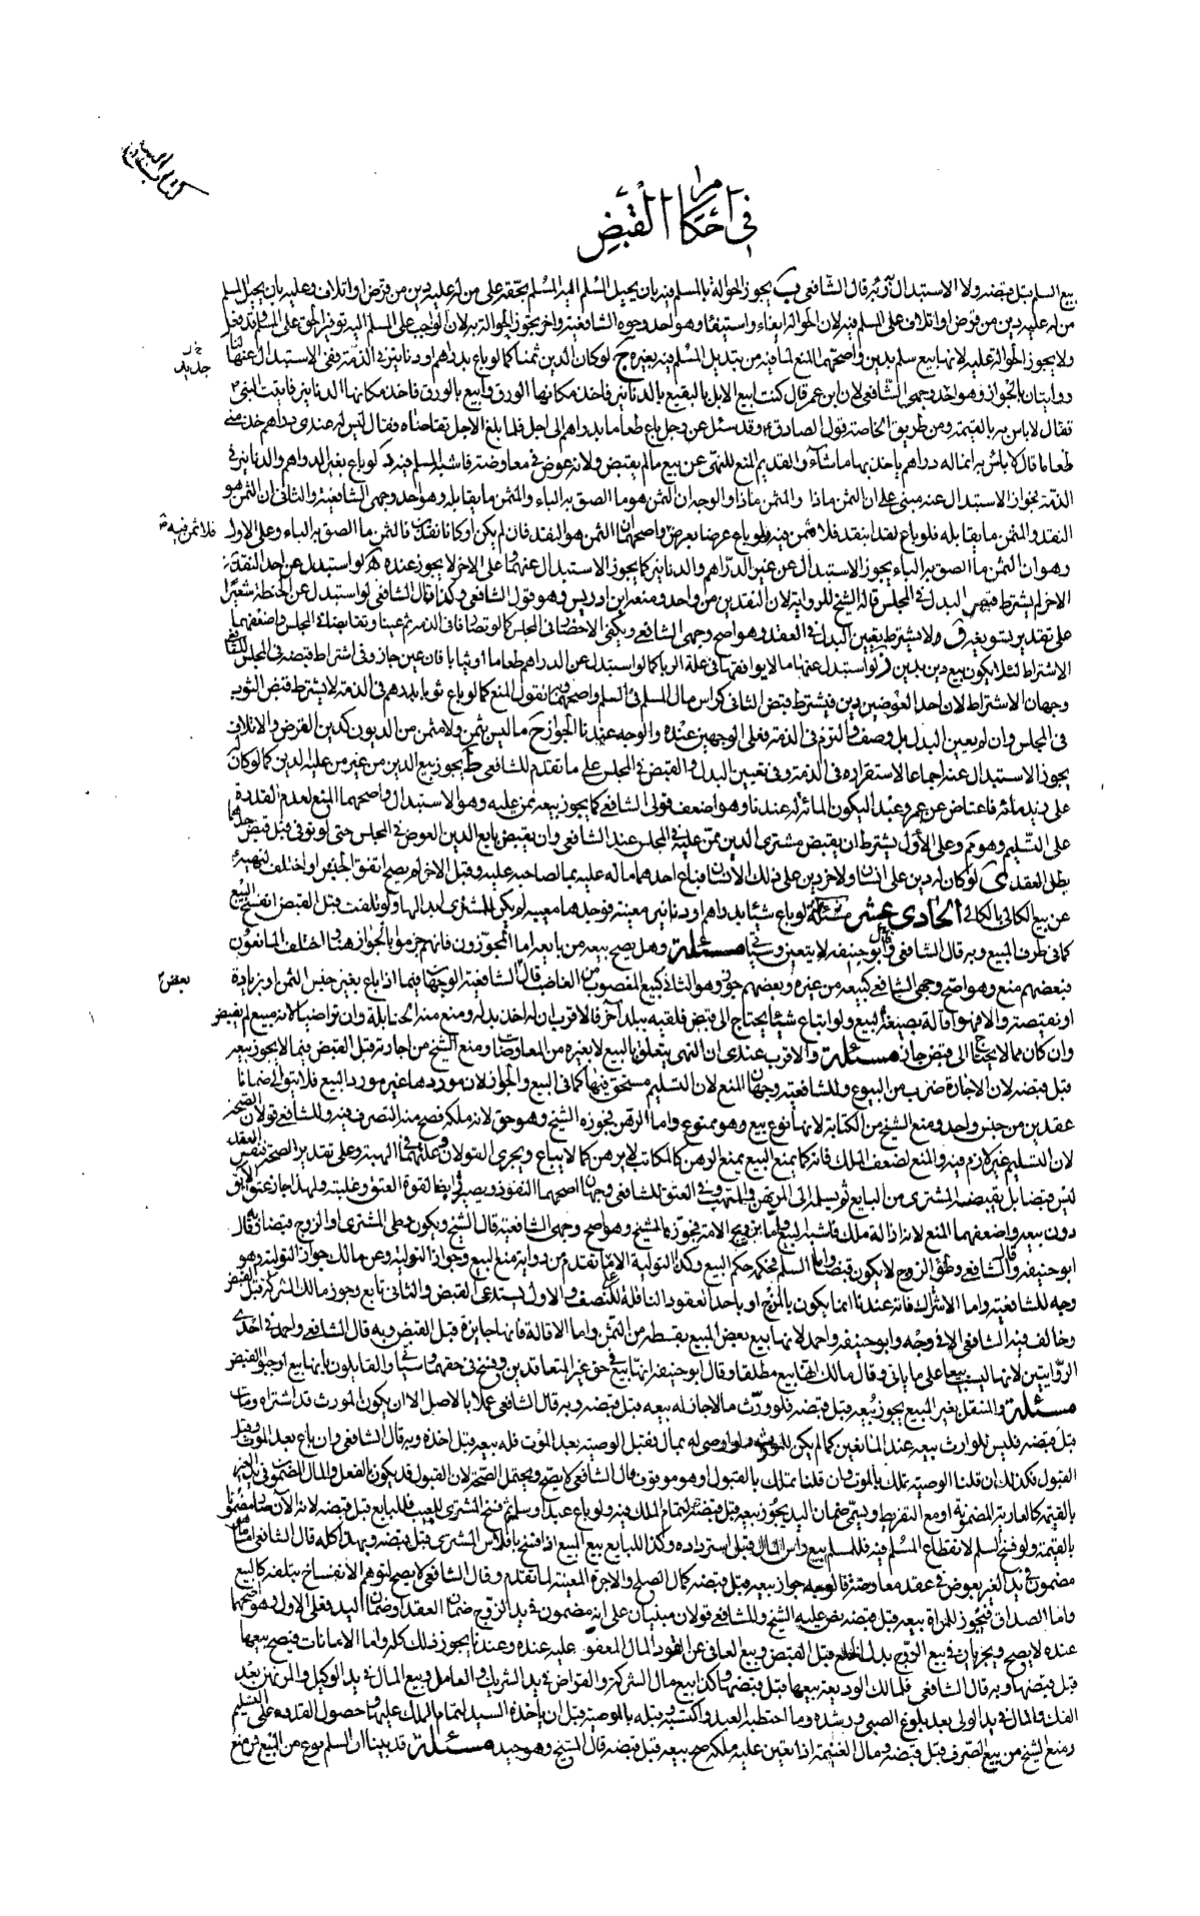 كتاب البيع
في أحكام القبض
بيع السلم قبل قبضه ولا الاستبدال به وبه قال الشافعي ب يجوز الحوالة بالمسلم فيه بان يحيل المسلم اليه المسلم بحقه على من له عليه دين من قرض او اتلاف وعليه بان يحيل المسلم
من له عليه دين من قرض او اتلاف على المسلم فيه لان الحوالة ايفاء واستيفاء وهو احد وجوه الشافعية واخر يجوز الحوالة به لان الواجب على المسلم اليه توفير الحق على المسلم وقد فعل
ولا يجوز الحوالة عليه لانها بيع سلم بدين واصحهما المنع لما فيه من تبديل المسلم فيه بغيره ج لو كان الدين ثمنا كما لو باع بدراهم او دنانير في الذمة ففي الاستبدال عنها لنا
روايتان الجواز وهو احد وجهي الشافعي لان ابن عمر قال كنت ابيع الابل بالبقيع بالدنانير فاخذ مكانها الورق وابيع بالورق فاخذ مكانها الدنانير فاتيت النبي
فقال لا باس به بالقيمة ومن طريق الخاصة قول الصادق وقد سئل عن رجل باع طعاما بدراهم الى اجل فلما بلغ الاجل تقاضاه فقال ليس عندي دراهم خذ مني
طعاما قال لا باس به انما له دراهم ياخذ بها ما شاء والقديم المنع للنهي عن بيع ما لم يقبض ولانه عوض في معاوضة فاشبه المسلم فيه د لو باع بغير الدراهم والدنانير في
الذمة فجواز الاستبدال عنه مبني على ان الثمن ماذا والمثمن ماذا والوجه ان الثمن هو ما الصق به الباء والمثمن ما يقابله وهو احد وجهي الشافعية والثاني ان الثمن هو
النقد والمثمن ما يقابله فلو باع نقدا بنقد فلا مثمن فيه ولو باع عرضا بعرض فلا ثمن فيه واصحها ان الثمن هو النقد فان لم يكن او كانا نقدين فالثمن ما الصق به الباء وعلى الاول
وهو ان الثمن ما الصق به الباء يجوز الاستبدال عن غير الدراهم والدنانير كما يجوز الاستبدال عنهما وعلى الاخر لا يجوز عنده ه لو استبدل عن احد النقدين
الاخر لم يشترط قبض البدل في المجلس قاله الشيخ للرواية لان النقدين من واحد ومنعه ابن ادريس وهو قول الشافعي وكذا قال الشافعي لو استبدل عن الحنطة شعيرا
على تقدير تسويغه ولا يشترط تعيين البدل في العقد وهو اصح وجهي الشافعي ويكفي الاحضار في المجلس كما لو تصارفا في الذمة ثم عينا وتقابضا في المجلس واضعفهما
الاشتراط لئلا يكون بيع دين بدين و لو استبدل عنها ما لا يوافقها في علة الربا كما لو استبدل عن الدراهم طعاما او ثيابا فان عين جاز وفي اشتراط قبضه في المجلس للشافعي
وجهان الاشتراط لان احد العوضين دين فيشترط قبض الثاني كراس مال السلم في السلم واصحهما وبه نقول المنع كما لو باع ثوبا بدرهم في الذمة لا يشترط قبض الثوب
في المجلس وان لم يعين البدل بل وصف والتزم في الذمة فعلى الوجهين عنده والوجه عندنا الجواز ح ما ليس بثمن ولا مثمن من الديون كدين القرض والاتلاف
يجوز الاستبدال عنه اجماعا لاستقراره في الذمة وفي تعيين البدل والقبض في المجلس على ما تقدم للشافعي ط يجوز بيع الدين من غير من عليه الدين كما لو كان
على زيد مائة فاعتاض عن عمرو عبدا ليكون المائة له عندنا وهو اضعف قولي الشافعي كما يجوز بيعه ممن عليه وهو الاستبدال واصحهما المنع لعدم القدرة
على التسليم وهو مم وعلى الاول يشترط ان يقبض مشتري الدين ممن عليه في المجلس عند الشافعي وان يقبض بايع الدين العوض في المجلس حتى لو تفرقا قبل قبض احدهما
بطل العقد ى لو كان له دين على انسان ولاخر دين على ذلك الانسان فباع احدهما ماله عليه بما لصاحبه عليه وقبل الاخر لم يصح اتفق الجنس او اختلف لنهيه
عن بيع الكالي بالكالي الحادي عشر مسئلة لو باع شيئا بدراهم او دنانير معينة فوجدها معيبة لم يكن للمشتري ابدالها ولو تلفت قبل القبض انفسخ البيع
كما في طرف المبيع وبه قال الشافعي وقال ابو حنيفة لا يتعين وسياتي مسئلة وهل يصح بيعه من بايعه اما المجوزون فانهم جزموا بالجواز هنا واختلف المانعون
فبعضهم منع وهو اصح وجهي الشافعي كبيعه من غيره وبعضهم جوزه وهو الثاني كبيع المغصوب من الغاصب قال بعض الشافعية الوجهان فيما اذا باع بغير جنس الثمن او بزيادة
او نقيصة والا فهو اقالة بصيغة البيع ولو ابتاع شيئا يحتاج الى قبض فلقيه ببلد اخر فالاقرب ان له اخذ بدله ومنع منه الحنابلة وان تراضيا لانه مبيع لم يقبض
وان كان مما لا يحتاج الى قبض جاز مسئلة والاقرب عندي ان النهي يتعلق بالبيع لا بغيره من المعاوضات ومنع الشيخ من اجارته قبل القبض فيما لا يجوز بيعه
قبل قبضه لان الاجارة ضرب من البيوع وللشافعية وجهان المنع لان التسليم مستحق فيها كما في البيع والجواز لان موردها غير مورد البيع فلا يتوالى ضمانا
عقدين من جنس واحد ومنع الشيخ من الكتابة لانها نوع بيع وهو ممنوع واما الرهن فجوزه الشيخ وهو حق لانه ملكه فصح منه التصرف فيه وللشافعي قولان الصحة
لان التسليم غير لازم فيه والمنع لضعف الملك فانه كما يمنع البيع يمنع الرهن كالمكاتب لا يرهن كما لا يباع ويجري القولان وعلتهما في الهبة وعلى تقدير الصحة فنفس العقد
ليس قبضا بل يقبضه المشتري من البايع ثم يسلمه الى المرتهن والمتهب وفي العتق للشافعي وجهان اصحهما النفوذ ويصير قابضا لقوة العتق وغلبته ولهذا جاز عتق الابق
دون بيعه واضعفهما المنع لانه ازالة ملك فاشبه البيع واما تزويج الامة فجوزه الشيخ وهو اصح وجهي الشافعية قال الشيخ ويكون وطي المشتري او الزوج قبضا وقال
ابو حنيفة والشافعي وطي الزوج لا يكون قبضا واما السلم فحكمه حكم البيع وكذا التولية الا ما تقدم من رواية منع البيع وجواز التولية وعن مالك جواز التولية وهو
وجه للشافعية واما الاشتراك فانه عندنا انما يكون بالمزج او باحد العقود الناقلة للنصف والاول يستدعي القبض والثاني تابع وجوز مالك الشركة قبل القبض
وخالف فيه الشافعي الا في وجه وابو حنيفة واحمد لانها بيع بعض المبيع بقسطه من الثمن واما الاقالة فانها جايزة قبل القبض وبه قال الشافعي واحمد في احدى
الروايتين لانها ليست بيعا على ما ياتي وقال مالك انها بيع مطلقا وقال ابو حنيفة انها بيع في حق غير المتعاقدين وفسخ في حقهما وسياتي والقايلون بانها بيع اوجبوا القبض
مسئلة والمنتقل بغير البيع يجوز بيعه قبل قبضه فلو ورث مالا جاز له بيعه قبل قبضه وبه قال الشافعي عملا بالاصل الا ان يكون المورث قد اشتراه ومات
قبل قبضه فليس للوارث بيعه عند المانعين كما لم يكن للمورث ولو اوصى له بمال فقبل الوصية بعد الموت فله بيعه قبل اخذه وبه قال الشافعي وان باع بعد الموت وقبل
القبول فكذلك ان قلنا الوصية تملك بالموت وان قلنا تملك بالقبول او هو موقوف قال الشافعي لا يصح ويحتمل الصحة لان القبول قد يكون بالفعل والمال المضمون في يد الغير
بالقيمة كالعارية المضمونة او مع التفريط ويسمى ضمان اليد يجوز بيعه قبل قبضه لتمام الملك فيه ولو باع عبدا وسلمه ثم فسخ المشتري للعيب فللبايع بيعه قبل قبضه لانه الان صار مضمونا
بالقيمة ولو فسخ السلم لانقطاع المسلم فيه فللمسلم بيع راس المال قبل استرداده وكذا للبايع بيع المبيع اذا فسخ بافلاس المشتري قبل قبضه وبهذا كله قال الشافعي اما
مضمون في يد الغير بعوض في عقد معاوضة فالوجه جواز بيعه قبل قبضه كمال الصلح والاجرة المعينة لما تقدم وقال الشافعي لا يصح لتوهم الانفساخ بتلفه كالبيع
واما الصداق فيجوز للمراة بيعه قبل قبضه نص عليه الشيخ وللشافعي قولان مبنيان على انه مضمون في يد الزوج ضمان العقد او ضمان اليد فعلى الاول وهو اصحهما
عنده لا يصح ويجريان في بيع الزوج بدل الخلع قبل القبض وبيع العافي عن القود المال المعفو عليه عنده وعندنا يجوز ذلك كله واما الامانات فيصح بيعها
قبل قبضها وبه قال الشافعي فلمالك الوديعة بيعها قبل قبضها وكذا بيع مال الشركة والقراض في يد الشريك والعامل وبيع المال في يد الوكيل والمرتهن بعد
الفك والمال في يد الولي بعد بلوغ الصبي ورشده وما احتطبه العبد واكتسبه وقبله بالوصية قبل ان ياخذه السيد لتمام الملك عليها وحصول القدرة على التسليم
ومنع الشيخ من بيع الصرف قبل قبضه ومال الغنيمة اذا تعين عليه ملكه صح بيعه قبل قبضه قال الشيخ وهو جيد مسئلة قد بينا ان السلم نوع من البيع فمن منع